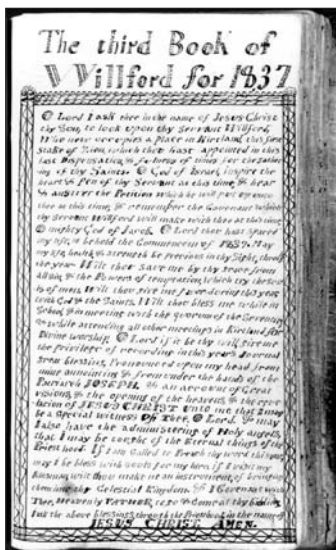 The third Book of
Willford for 1837
O Lord I ask thee in the name of Jesus Christ
thy Son, to look upon thy Servant Willford,
Who now occupies a place in Kirtland, this first
Stake of Zion, which thou hast appointed in this
last Dispensation & fulness of times for the gather
ing of thy Saints. O God of Israel inspire the
heart & pen of thy Servant at this time, & hear
& answer the Petition which he will put up unto
thee at this time, & remember the Covenant which
thy Servant Willford will make with thee at this time,
O mighty God of Jacob. O Lord thou hast spared
my life, to behold the Commencem of 1837. May
my life, health & strength be Precious in thy Sight, through
the year. Wilt thou save me by thy grace from
all sin, & the Powers of temptation which try the souls
of men. Wilt thou give me favor during this year
with God & the Saints. Wilt thou bless me while in
School, & in meeting with the quorum of the Seventies
& while attending all other meetings in Kirtland, for
Divine worship. O Lord if it be thy will, give me
the privilege of recording in this years Journal
great blessings, Pronounced upon my head from
mine annointing & from under the hands of the
Patriarch JOSEPH. & an account of Great
visions, & the opening of the heavens, & the reve
lation of JESUS CHRIST unto me that I may
be a Special witness Of Thee. O Lord, & may
I also have the administering of Holy angels,
that I may be taught of the Eternal things of the
Priesthood. If I am Called to Preach thy word this year,
may I be bless with souls for my hire, if I visit my
Kinsman, wilt thou make me an instrument, of bringing
them into thy Celestial Kingdom. & I Covenant with
Thee, Heavenly FATHER, to &
ask the above blessings, through the Priesthood, in the name of
JESUS CHRIST AMEN.